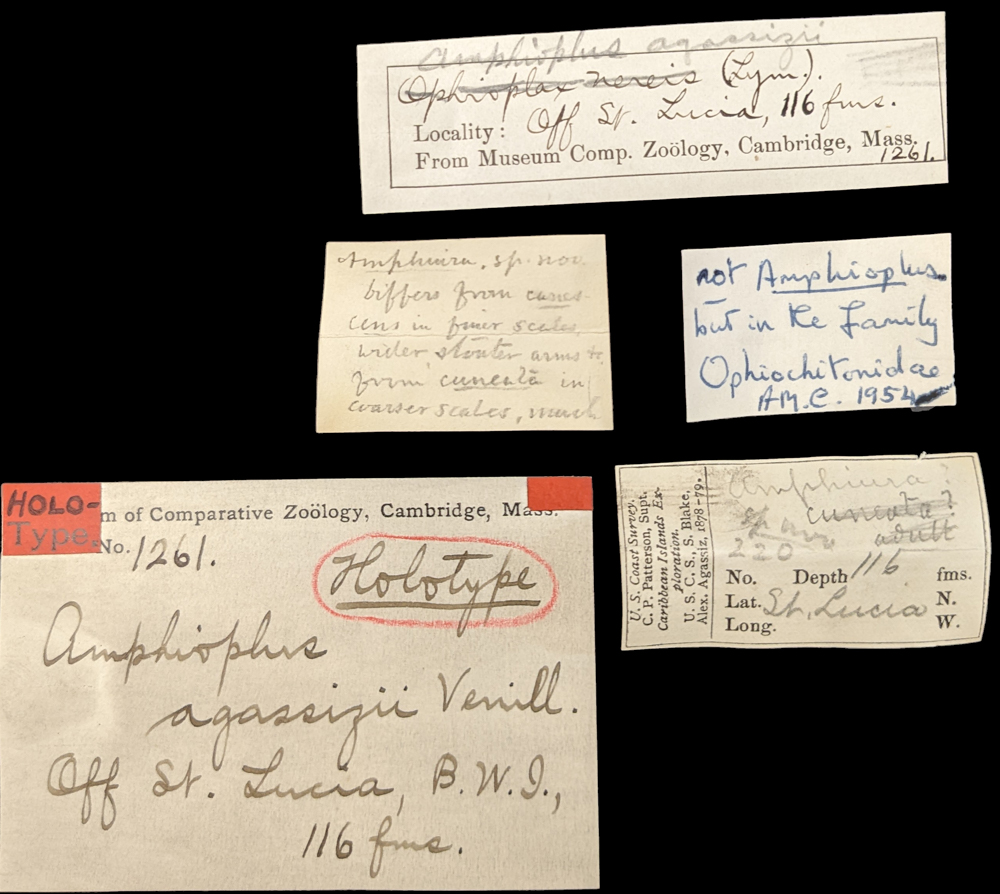 Amphioplus agassizii
Ophioplax nereis (Lym.).
Locality: Off St. Lucia, 116 fms.
From Museum Comp. Zoölogy, Cambridge, Mass.
1261.
Amphiura, sp. nov.
differs from canes-
cens in finer scales,
wider stouter arms &
from cuneata in
coarser scales, much
not Amphioplus
but in the family
Ophiochitonidae
A.M.C. 1954
HOLO-
Type.
m of Comparative Zoölogy, Cambridge, Mass.
No. 1261.
Holotype
Amphioplus
agassizii Verrill.
Off St. Lucia, B.W.I.,
116 fms.
U. S. Coast Survey.
C. P. Patterson, Supt.
Caribbean Islands Ex-
ploration.
U. S. C. S., S. Blake,
Alex. Agassiz, 1878-79.
Amphiura?
cuneata?
sp. nov. adult
220
No. Depth 116 fms.
Lat. St. Lucia N.
Long. W.